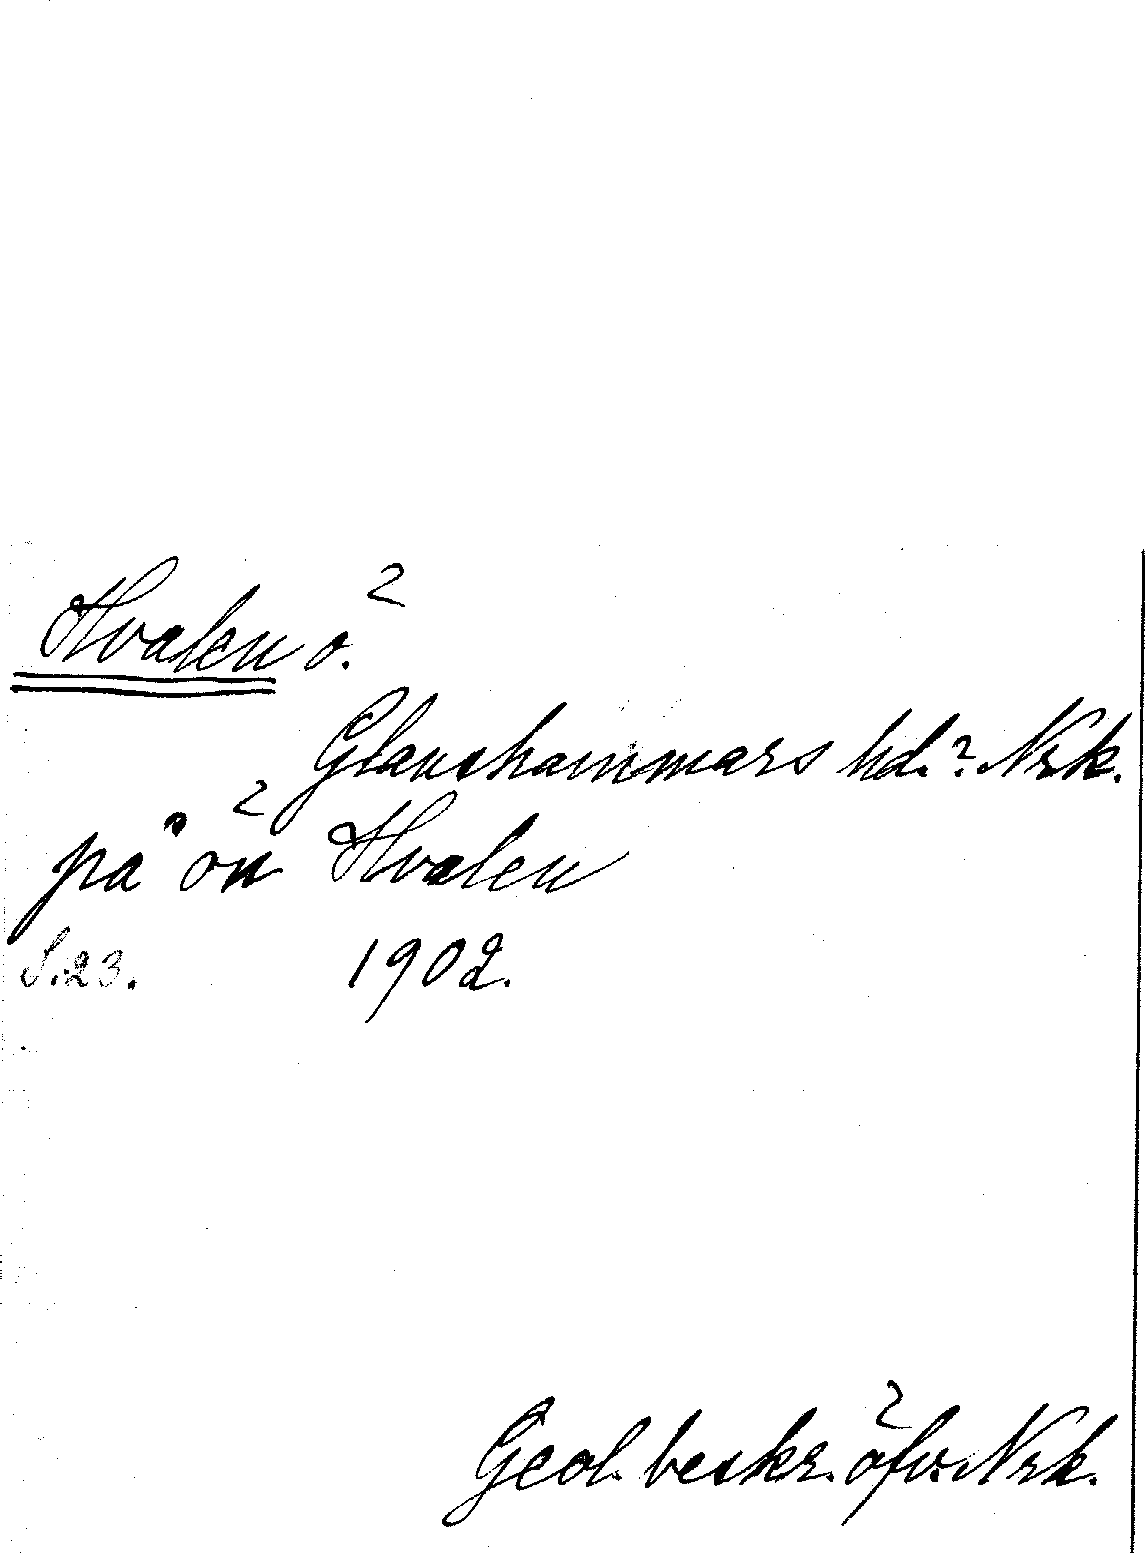 Hvalen ö.
Glanshammars hd.? Nrk.
på ön Hvalen
S. 23. 1902.
Geol. beskr. öfv. Nrk.